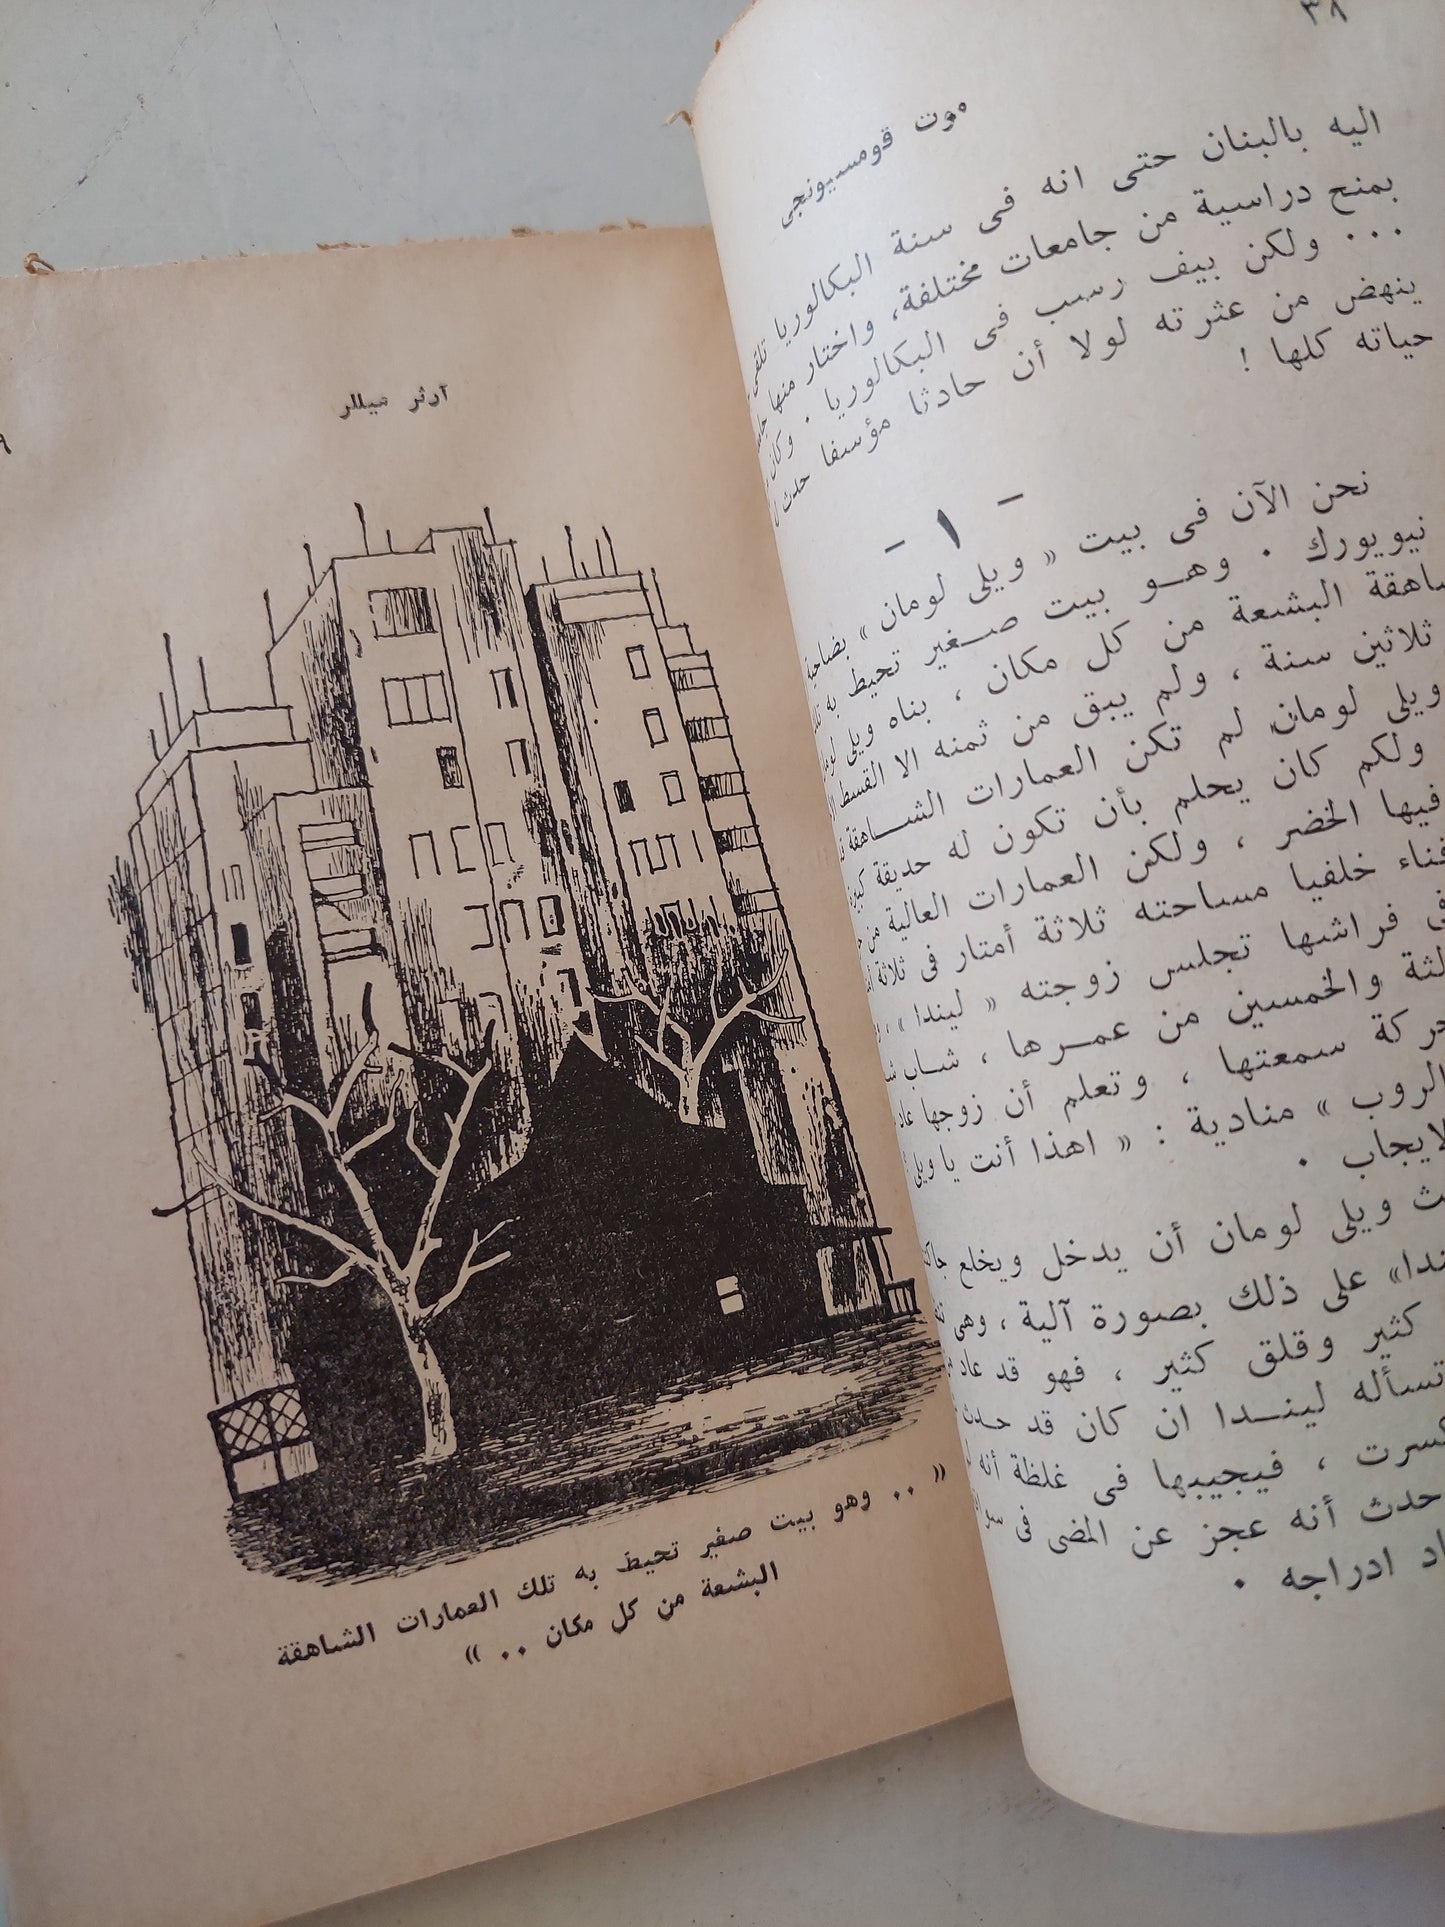 ٣٨
موت قومسيونجى
اليه بالبنان حتى انه فى سنة البكالوريا تلقى
بمنح دراسية من جامعات مختلفة، واختار منها
... ولكن بيف رسب فى البكالوريا . وكان
ينهض من عثرته لولا أن حادثا مؤسفا حدث
حياته كلها !
- ١ -
نحن الآن فى بيت « ويلى لومان » بضاحية
نيويورك . وهو بيت صغير تحيط به
البشعة من كل مكان ، بناه ويلى
ثلاثين سنة ، ولم يبق من ثمنه الا القسط
ويلى لومان لم تكن العمارات الشاهقة
ولكم كان يحلم بأن تكون له حديقة
فيها الخضر ، ولكن العمارات العالية من
فناء خلفيا مساحته ثلاثة أمتار فى ثلاثة
فى فراشها تجلس زوجته « ليندا » ،
والخمسين من عمرها ، شاب
حركة سمعتها ، وتعلم أن زوجها
الروب » منادية : « اهذا أنت يا ويلى
ويلى لومان أن يدخل ويخلع
على ذلك بصورة آلية ، وهى
كثير وقلق كثير ، فهو قد عاد
تسأله ليندا ان كان قد حدث
فيجيبها فى غلظة أنه
حدث أنه عجز عن المضى فى
ادراجه .
آرثر ميللر
« .. وهو بيت صغير تحيط به تلك العمارات الشاهقة
البشعة من كل مكان .. »